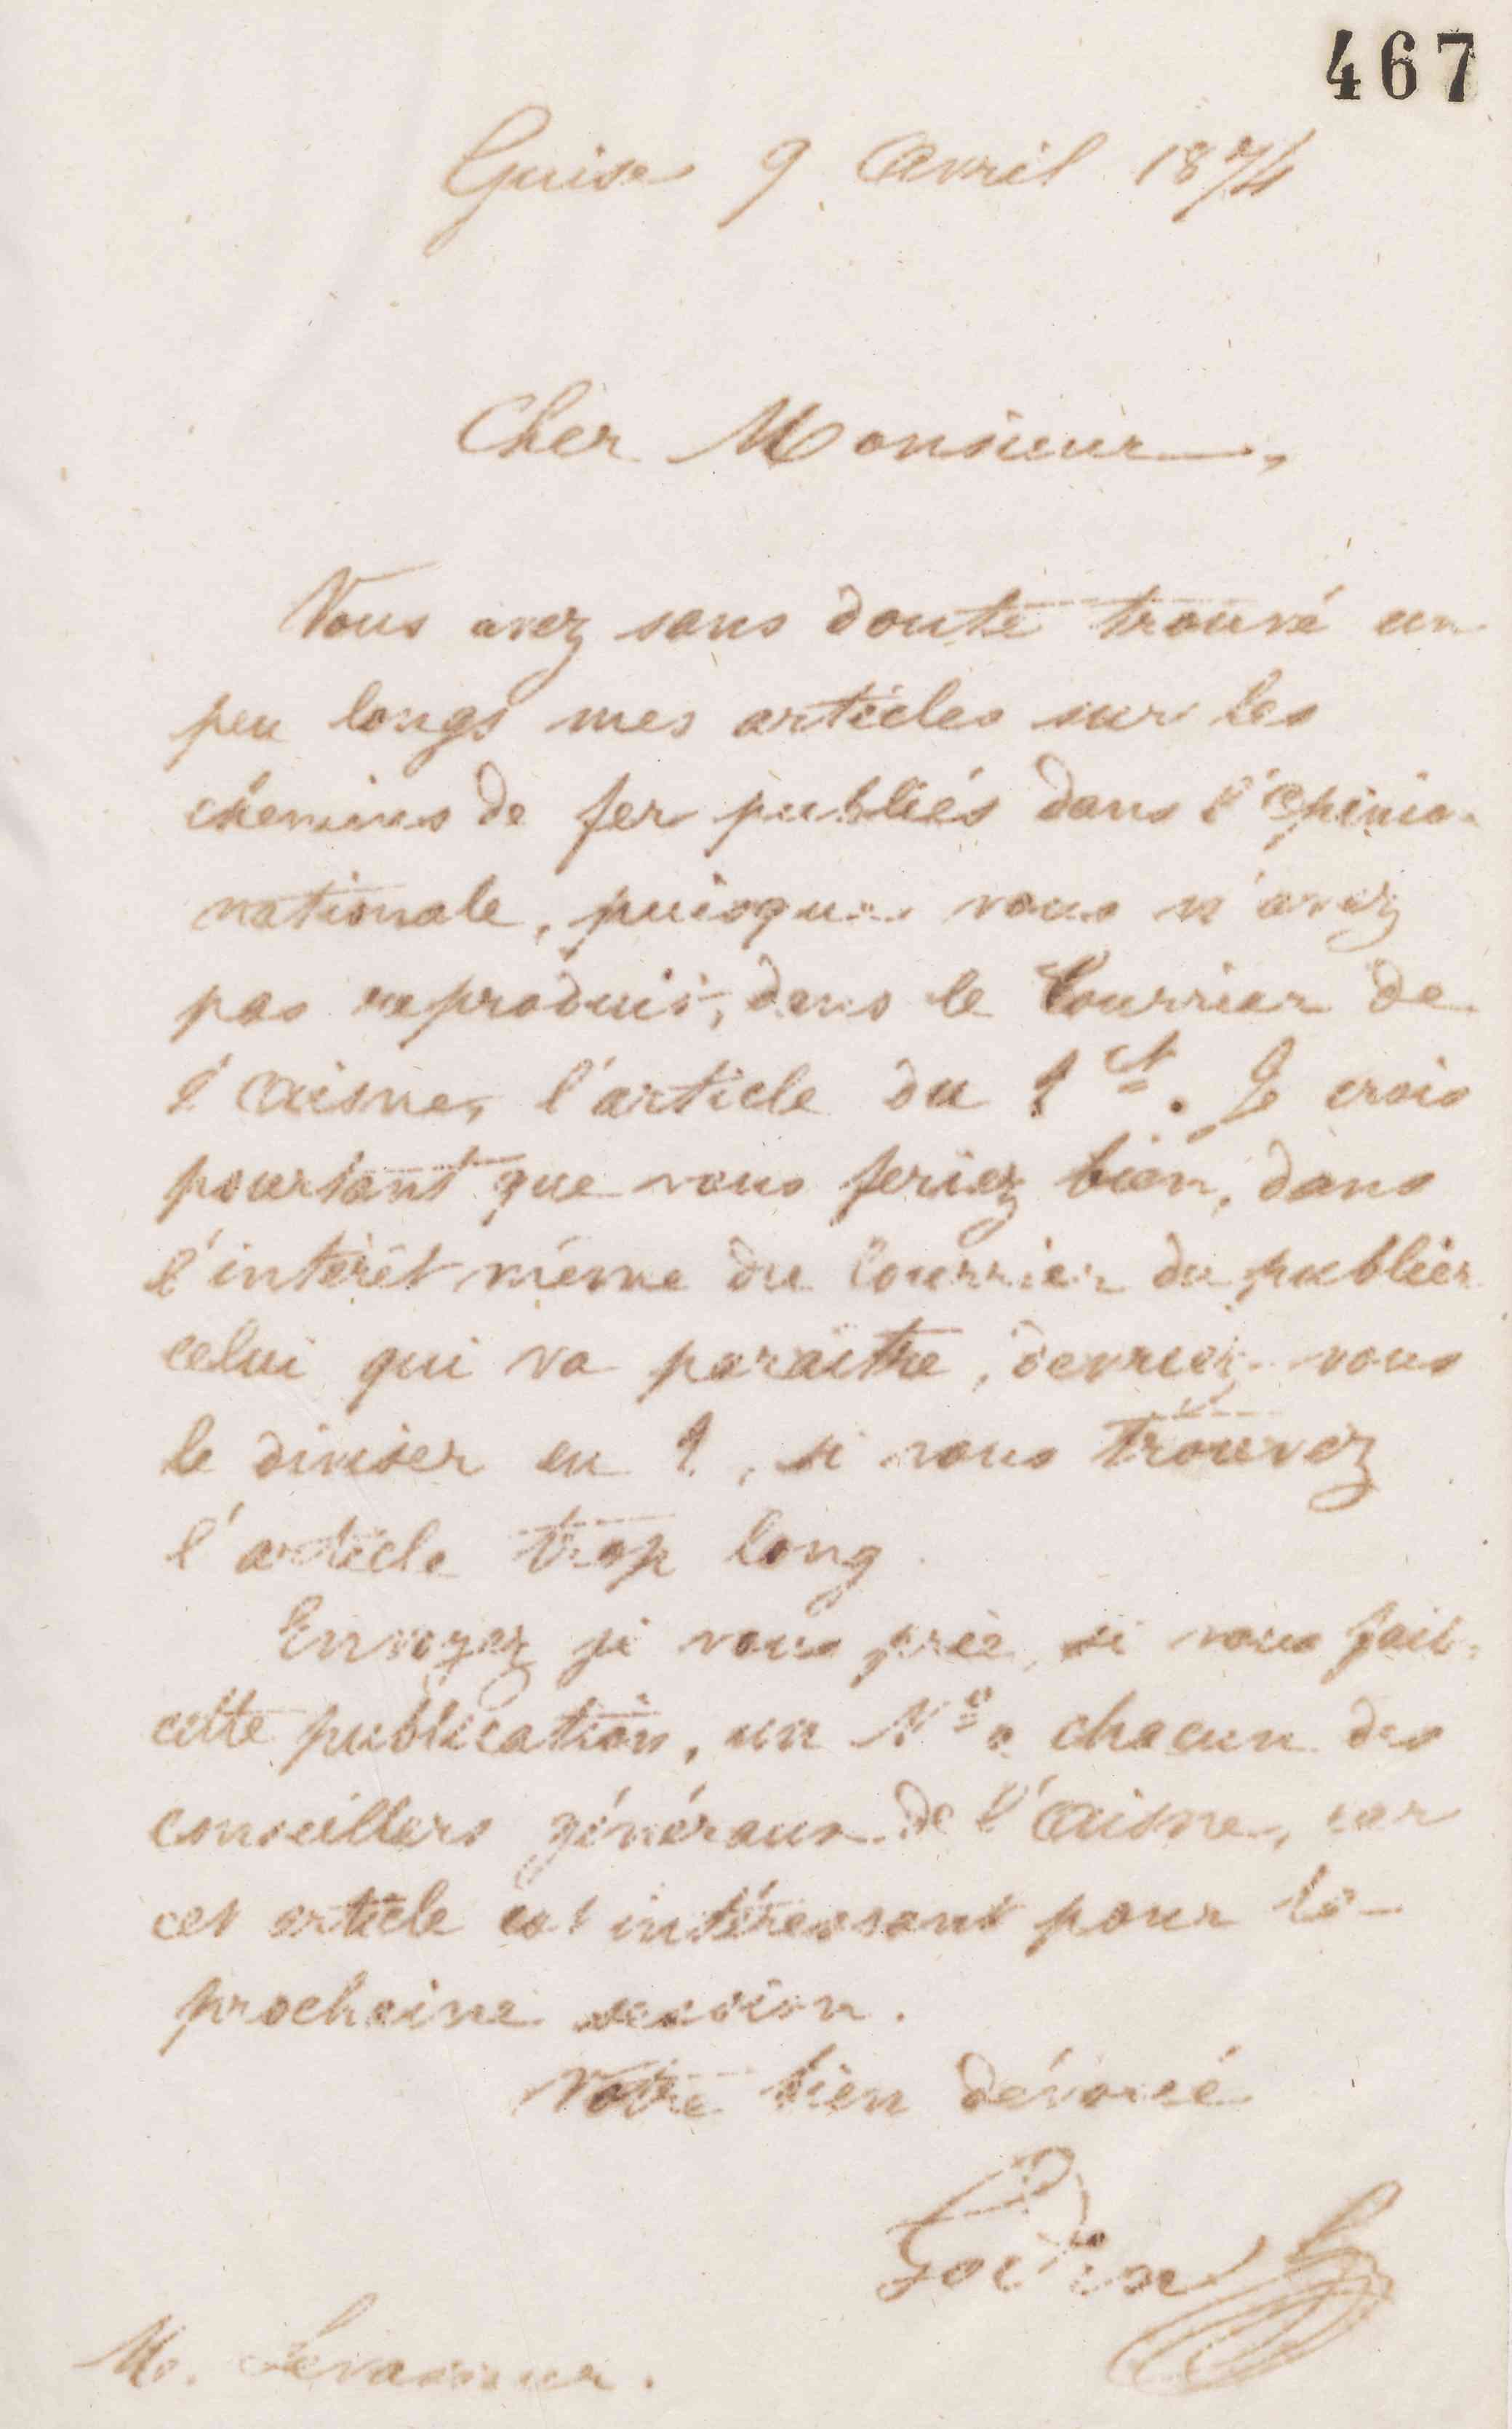 467
Guise 9 Avril 1874
Cher Monsieur,
Vous avez sans doute trouvé un
peu longs mes articles sur les
chemins de fer publiés dans l'Opinion
nationale, puisque vous n'avez
pas reproduit, dans le Courrier de
l'Aisne, l'article du 1er. Je crois
pourtant que vous feriez bien, dans
l'intérêt même du Courrier de publier
celui qui va paraître, devriez-vous
le diviser en 2, si vous trouvez
l'article trop long.
Envoyez je vous prie, si vous fait
cette publication, un No à chacun des
conseillers généraux de l'Aisne, car
cet article est intéressant pour la
prochaine session.
Votre bien dévoué
Godin
Mr. Levasseur.